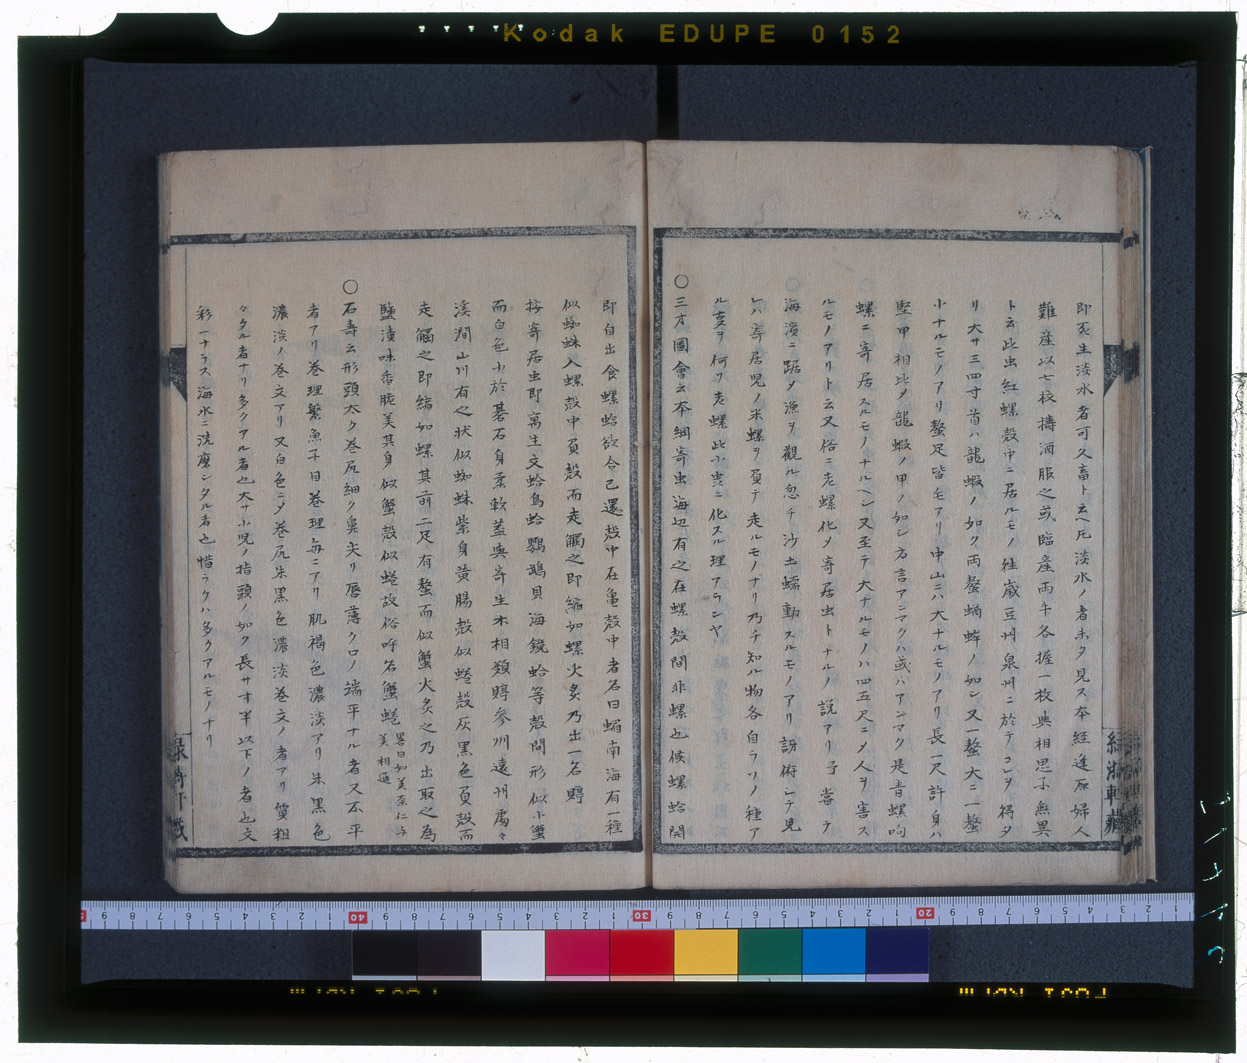 Kodak EDUPE 0152
即炙生淡水者可久畜ト云ヘ𪜈淡水ノ者未タ見ス本経逢原婦人
難産以七枚擣酒服之或臨産両手各握一枚與相思子無異
ト云此虫紅螺殻中ニ居ルモノ往歳豆州泉州ニ於テコレヲ得タ
リ大サ三四寸首ハ龍蝦ノ如ク両螯蝤蛑ノ如シ又一螯大ニ一螯
小ナルモノアリ螯足皆毛アリ中山ニハ大ナルモノアリ長一尺許身ハ
堅甲相比〆龍蝦ノ甲ノ如シ方言アンマクハ或ハアンマク是昔螺
螺ニ寄居スルモノナルヘシ又至テ大ナルモノハ四五尺ニ〆人ヲ害ス
ルモノアリト云又俗ニ老螺化〆寄居虫トナルノ説アリ予嘗テ
海濱ニ踞〆漁ヲ觀ル忽チ沙土蠕動スルモノアリ訝俯シテ見
レハ寄居児ノ米螺ヲ負テ走ルモノナリ乃チ知ル物各自ラソノ種ア
ルヿヲ何ソ老螺此小虫ニ化スル理アランヤ
〇三才圖會云本綱寄虫海辺有之在螺殻間非螺也候螺蛤開
即自出食螺蛤欲合已還殻中在亀殻中者名曰蝞南海有一種
似蜘蛛入螺殻中負殻而走觸之即縮如螺火炙乃出一名𧐐
按寄居虫即寓生文蛤鳥蛤鸚鵡貝海鏡蛤等殻間形似小蟹
而白色小於碁石身柔軟蓋與寄生木相類𧐐参州遠州處々
溪澗山川有之状似蜘蛛紫身黄腸殻似蜷殻灰黒色負殻而
走觸之即縮如螺其前二足有螯而似蟹火炙之乃出取之為
鹽漬味香脆美其身似蟹殻似蜷故俗呼名蟹蜷畧曰如美奈仁与美相通
〇石壽云形頭太ク巻尻細ク鼻尖リ唇薄ク口ノ端平ナル者又不平
者アリ巻理繁魚子目巻理毎ニアリ肌褐色濃淡アリ朱黒色
濃淡ノ巻文アリ又白色ニ〆巻尻朱黒色濃淡巻文ノ者アリ質粗
々タル者ナリ多クアル者也大サ小児ノ指頭ノ如ク長サ寸半以下ノ者也文
彩一ナラス海水ニ洗磨シタル者也惜ラクハ多クアルモノナリ